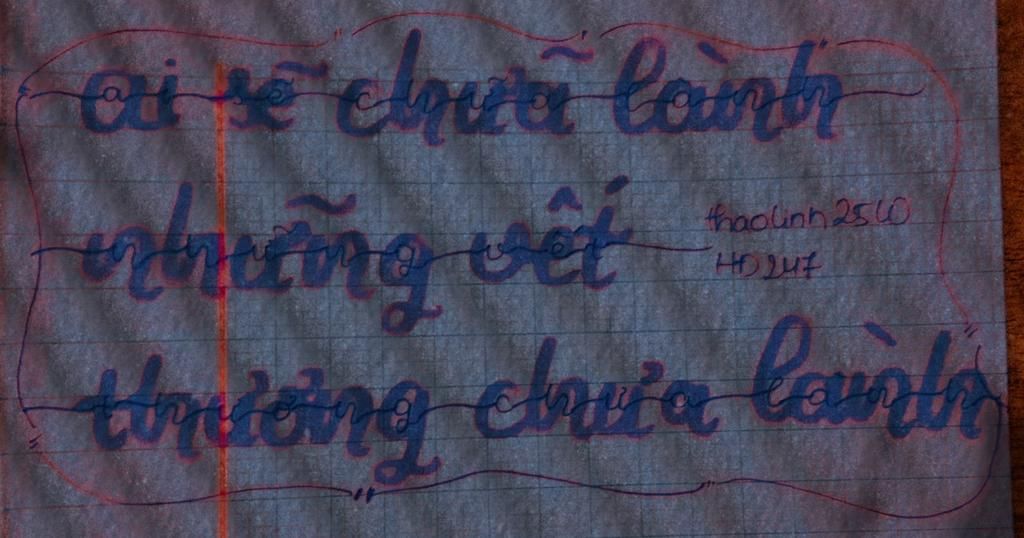 ai sẽ chữa lành
những vết
thaolinh2510
HD247
thương chưa lành